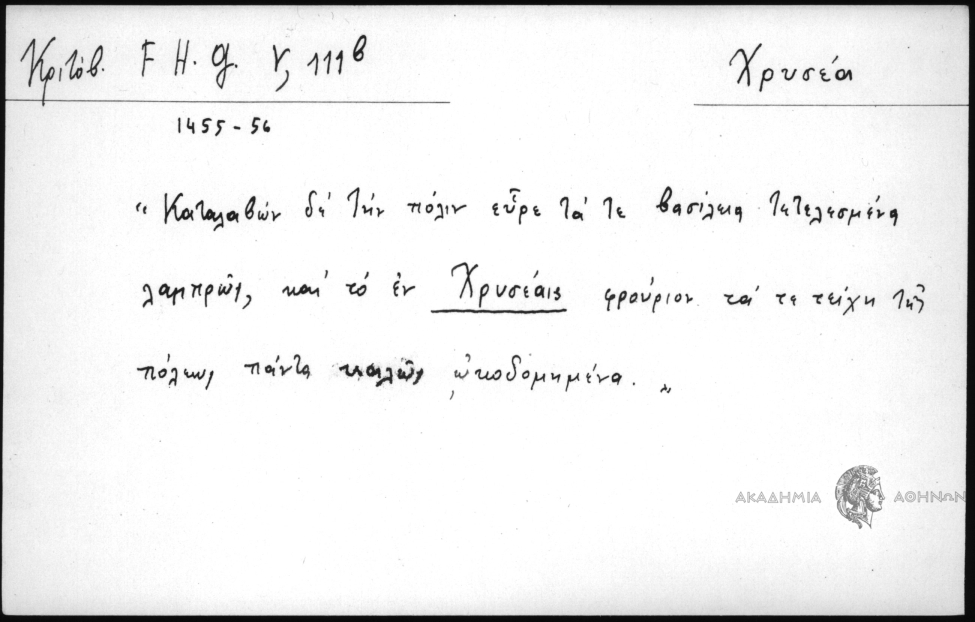 Κριτόβ. F H. G. V, 111β
Χρυσέαι
1455-56
"Καταλαβών δέ τήν πόλιν εὗρε τά τε βασίλεια τετελεσμένα
λαμπρῶς, καί τό ἐν Χρυσέαις φρούριον τά τε τείχη τῆς
πόλεως πάντα καλῶς ᾠκοδομημένα."
ΑΚΑΔΗΜΙΑ ΑΘΗΝΩΝ